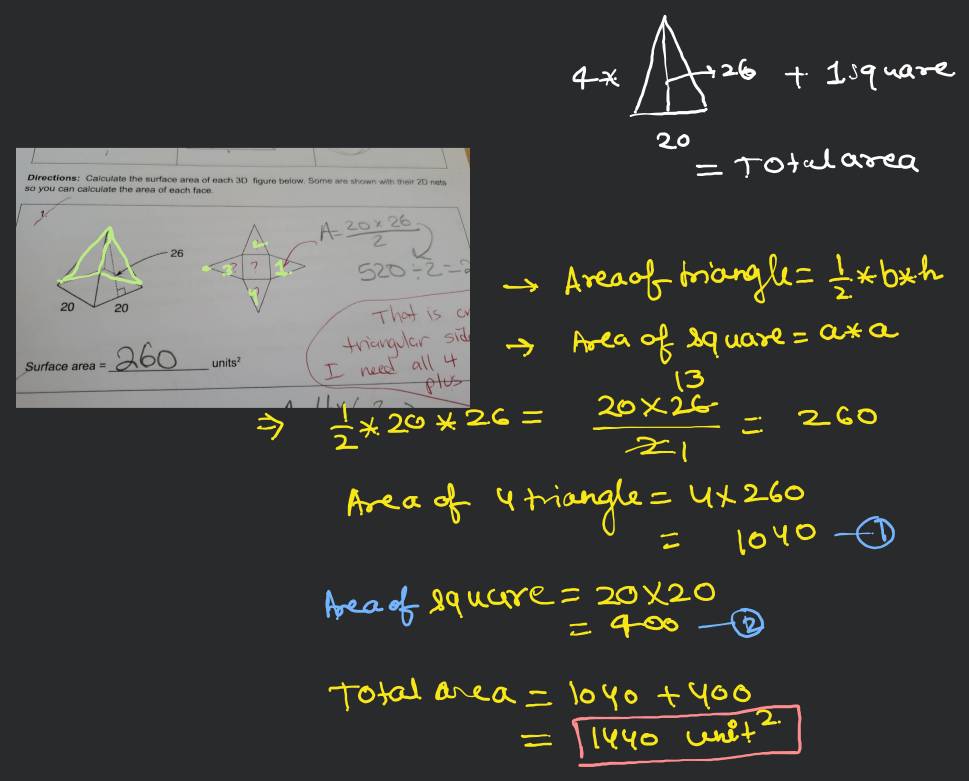 4* 26 + 1 square
20
= Total area
Directions: Calculate the surface area of each 3D figure below. Some are shown with their 2D nets
so you can calculate the area of each face.
1.
26
20 20
2
3 ? 1
4
A = 20 × 26
2
520 ÷ 2 = 2
That is
triangular
I need all 4
plus
Surface area = 260 units²
→ Area of triangle = 1/2 * b * h
→ Area of square = a * a
13
⇒ 1/2 * 20 * 26 = 20 × 26 / 2 1 = 260
Area of 4 triangle = 4 × 260
= 1040 — ①
Area of square = 20 × 20
= 400 — ②
Total area = 1040 + 400
= 1440 unit²